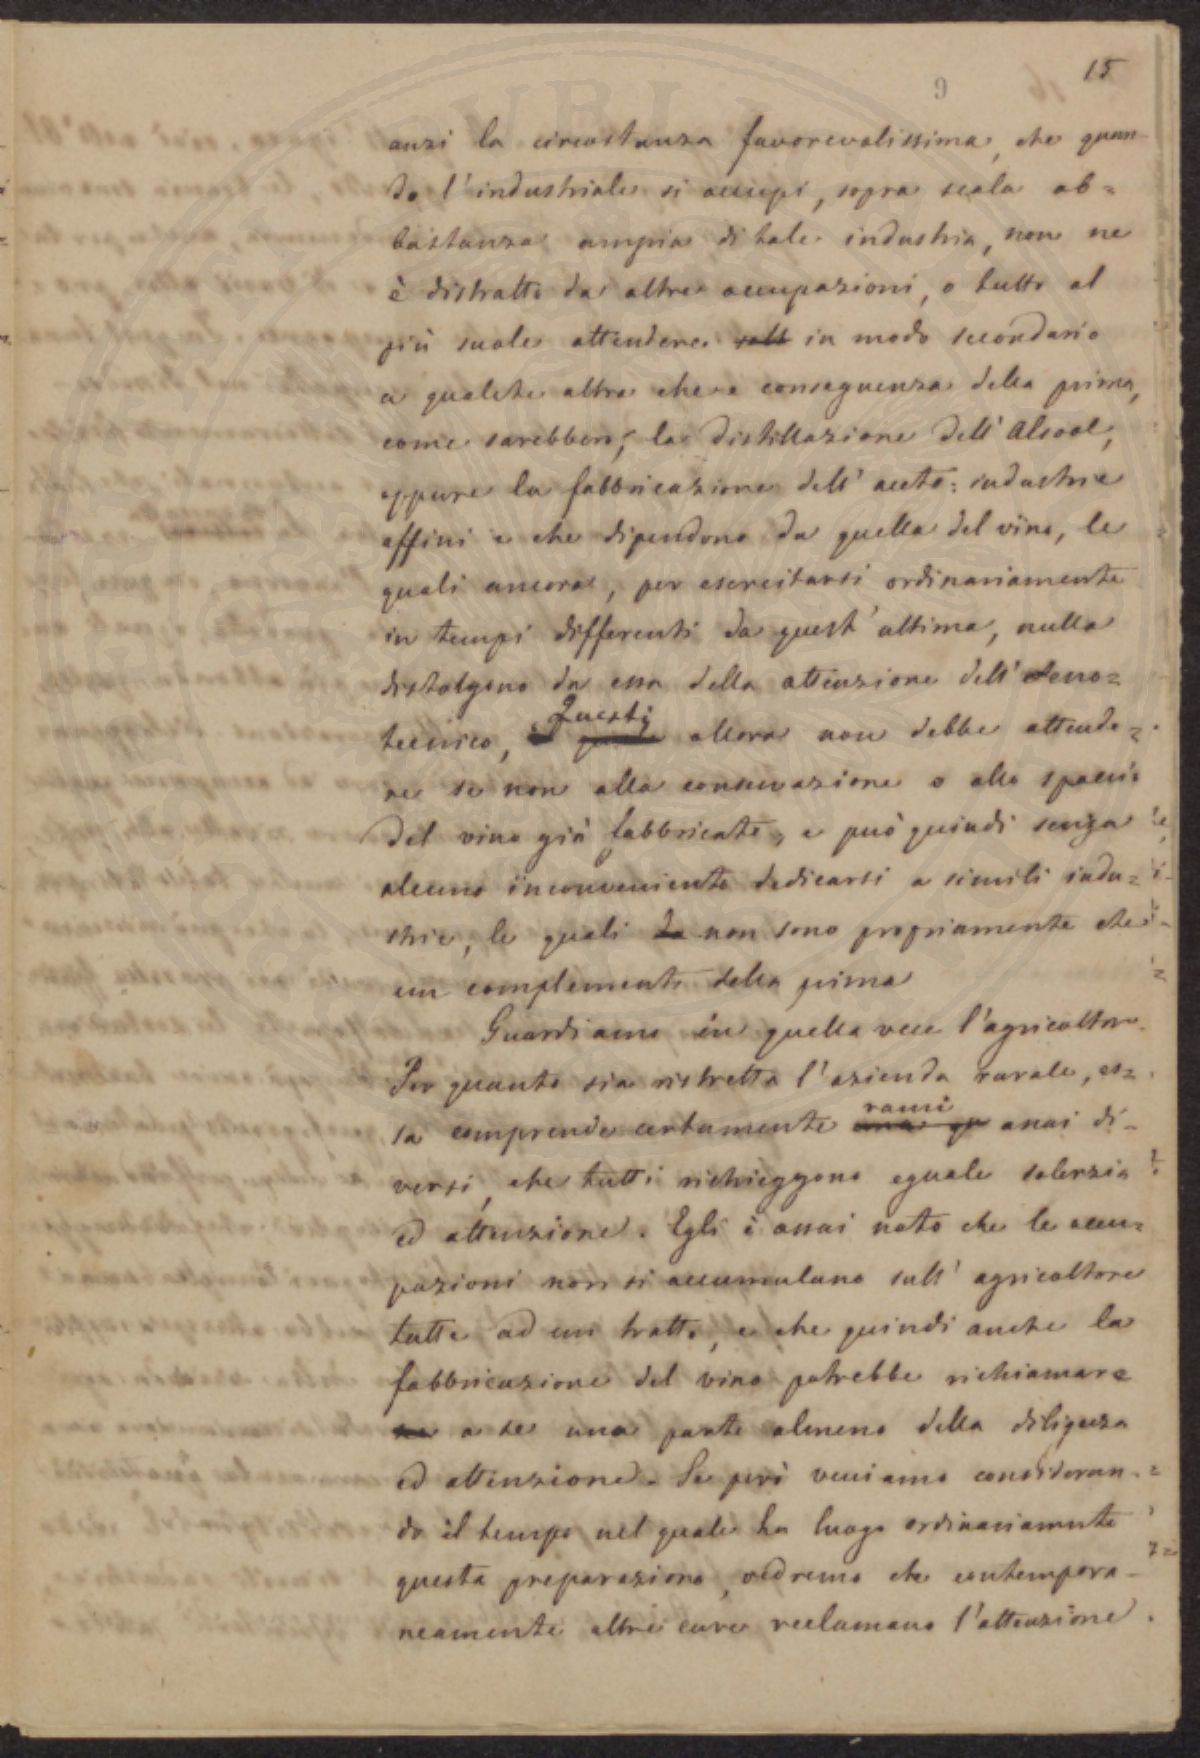 15
9
anzi la circostanza favorevolissima, che quan-
do l'industriale si occupi, sopra scala ab=
bastanza ampia di tale industria, non ne
è distratto da altre occupazioni, o tutto al
più suole attendere in modo secondario
a qualche altra che è conseguenza della prima,
come sarebbero, la distillazione dell'Alcool,
oppure la fabbricazione dell'aceto: industrie
affini e che dipendono da quella del vino, le
quali ancora, per esercitarsi ordinariamente
in tempi differenti da quest'ultima, nulla
distolgono da essa della attenzione dell'eno=
tecnico, Questi allora non debbe attende=
re se non alla conservazione o allo spaccio
del vino già fabbricato, e può quindi senza
alcuno inconveniente dedicarsi a simili indu=
strie, le quali non sono propriamente che
un complemento della prima
Guardiamo in quella vece l'agricoltore.
Per quanto sia ristretta l'azienda rurale, es=
sa comprende certamente rami assai di-
versi, che tutti richieggono eguale solerzia
ed attenzione. Egli è assai noto che le occu=
pazioni non si accumulano sull'agricoltore
tutte ad un tratto, e che quindi anche la
fabbricazione del vino potrebbe richiamare
a se una parte almeno della diligenza
ed attenzione. Se però veniamo consideran-
do il tempo nel quale ha luogo ordinariamente
questa preparazione, vedremo che contempora-
neamente altre cure reclamano l'attenzione.